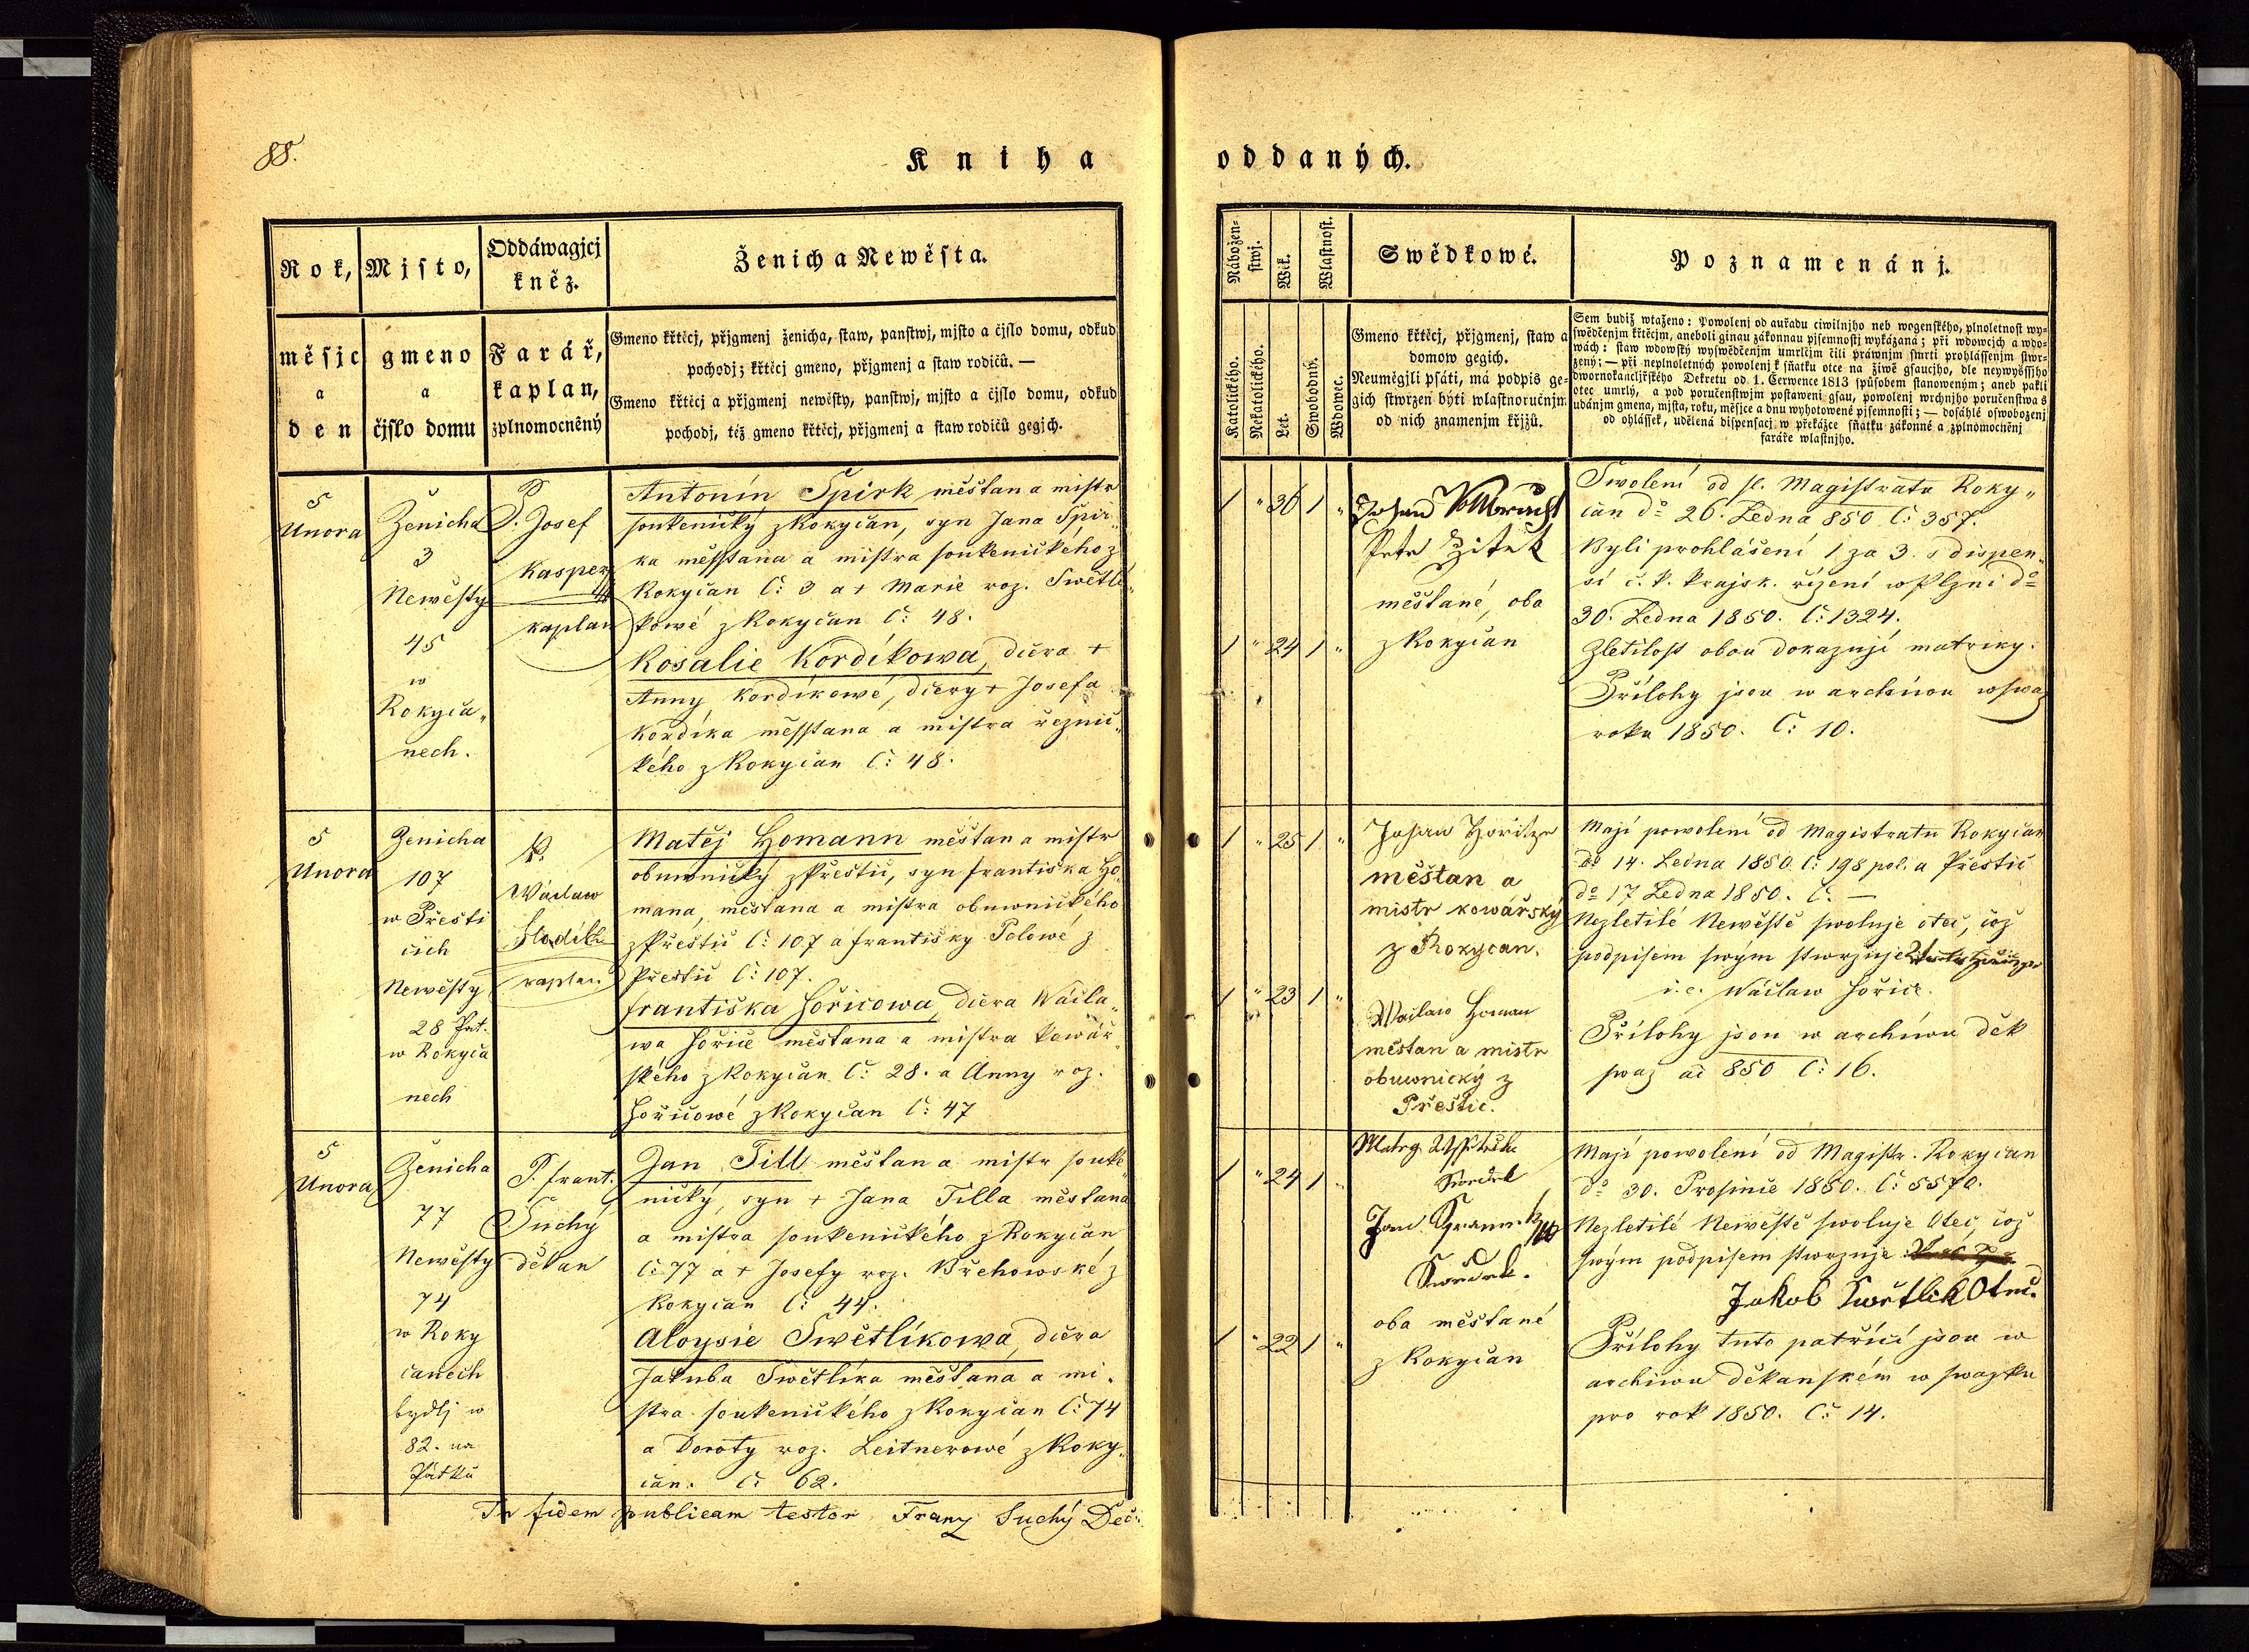 88.
Kniha oddaných.
Rok,
měsjc
a
den
Mjsto,
gmeno
a
čjslo domu
Oddáwagjcj
kněz.
Farář,
kaplan,
zplnomocněný
Ženich a Newěsta.
Gmeno křtěcj, přjgmenj ženicha, staw, panstwj, mjsto a čjslo domu, odkud
pochodj; křtěcj gmeno, přjgmenj a staw rodičů. —
Gmeno křtěcj a přjgmenj newěsty, panstwj, mjsto a čjslo domu, odkud
pochodj, též gmeno křtěcj, přjgmenj a staw rodičů gegjch.
Nábožen-
stwj.
Katolického.
Nekatolického.
Wěk.
Let.
Wlastnost.
Swobodný.
Wdowec.
Swědkowé.
Gmeno křtěcj, přjgmenj, staw a
domow gegich.
Neuměgjli psáti, má podpis ge-
gich stwrzen býti wlastnoručnjm
od nich znamenjm křjžů.
Poznamenánj.
Sem budiž wtaženo: Powolenj od auřadu ciwilnjho neb wogenského, plnoletnost wy-
swědčenjm křtěcjm, aneboli ginau zákonnau pjsemnostj wykázaná; při wdowcjch a wdo-
wách: staw wdowský wyswědčenjm umrlčjm čili práwnjm smrti prohlássenjm stwr-
zený; — při neplnoletných powolenj k sňatku otce na žiwě gsaucjho, dle neywyšssjho
dwornokancljřského Dekretu od 1. Čerwence 1813 spůsobem stanoweným; aneb pakli
otec umrlý, a pod poručenstwjm postaweni gsau, powolenj wrchnjho poručenstwa s
udánjm gmena, mjsta, roku, měsjce a dnu wyhotowené pjsemnosti; — dosáhlé oswobozenj
od ohlássek, udělená dispensacj w překážce sňatku zákonné a zplnomocněnj
faráře wlastnjho.
5
Unora
Ženicha
3
Newěsty
45
w
Rokyca„
nech.
P. Josef
Kasper
kaplan
Antonín Špirk měšťan a mistr
soukenický z Rokycan, syn Jana Špir„
ka měssťana a mistra soukenického z
Rokycan č: 3 a + Marie roz. Swětlí„
kowé z Rokycan č: 48.
Rosalie Kordíkowa, dcera +
Anny Kordíkowé, dcery + Josefa
Kordíka měssťana a mistra řeznic„
kého z Rokycan č: 48.
1 „ 36 1 „
1 „ 24 1 „
Petr Žitek
měšťané, oba
z Rokycan
Swolení od sl. Magistratu Roky„
can do 26. Ledna 850 č: 357.
Byli prohlášení 1 za 3 s dispen„
sí c. k. krajsk. řízení w Plzni do
30. Ledna 1850. č: 1324.
Zletilost obou dokazují matriky.
Přílohy jsou w archivu w swaz
roku 1850. č: 10.
5
Unora
Ženicha
107
w Přešti
cích
Newěsty
28
w Rokyca
nech
P.
Wáclaw
kaplan
Matěj Homann měšťan a mistr
obuwnický z Přeštic, syn Františka Ho„
mana, měšťana a mistra obuwnického
z Přeštic č: 107 a Františky Polowé z
Přeštic č: 107.
Františka Hořicowa, dcera Wácla„
wa Hořice měšťana a mistra kowář„
ského z Rokycan č: 28. a Anny roz.
Hořicowé z Rokycan č: 47
1 „ 25 1 „
1 „ 23 1 „
měšťan a
mistr kowářský
z Rokycan.
Waclaw Homan
měšťan a mistr
obuwnický z
Přeštic.
Mají powolení od Magistratu Rokycan
do 14. Ledna 1850 č: 198 pol. a Přeštic
do 17 Ledna 1850. č. —
Nezletilé Newěstě swoluje otec, což
podpisem swým stwrzuje
i. e. Wáclaw Hořice.
Přílohy jsou w archiwu děk
swaz ai 850 č: 16.
5
Unora
Ženicha
77
Newěsty
74
w Roky
canech
bydlj w
82. na
Pátku
P. Frant.
Suchý
děkan
Jan Till měšťan a mistr souke
nický, syn + Jana Tilla měšťana
a mistra soukenického z Rokycan
č: 77 a + Josefy roz. Břehowské z
Rokycan č: 44.
Aloysie Swětlíkowa, dcera
Jakuba Swětlíka měšťana a mi.
stra soukenického z Rokycan č: 74
a Doroty roz. Leitnerowé z Roky„
can. č: 62.
1 „ 24 1 „
1 „ 22 1 „
Swědek
Jan
Swědek.
oba měšťané
z Rokycan
Mají powolení od Magistr. Rokycan
do 30. Prosince 1850. č: 5570.
Nezletilé Newěstě swoluje Otec, což
swým podpisem stwrzuje
Jakob Swětlik Otec.
Přílohy tuto patřící jsou w
archiwu děkanském w swazku
pro rok 1850. č: 14.
In fidem publicam testor Franz Suchý Dec: